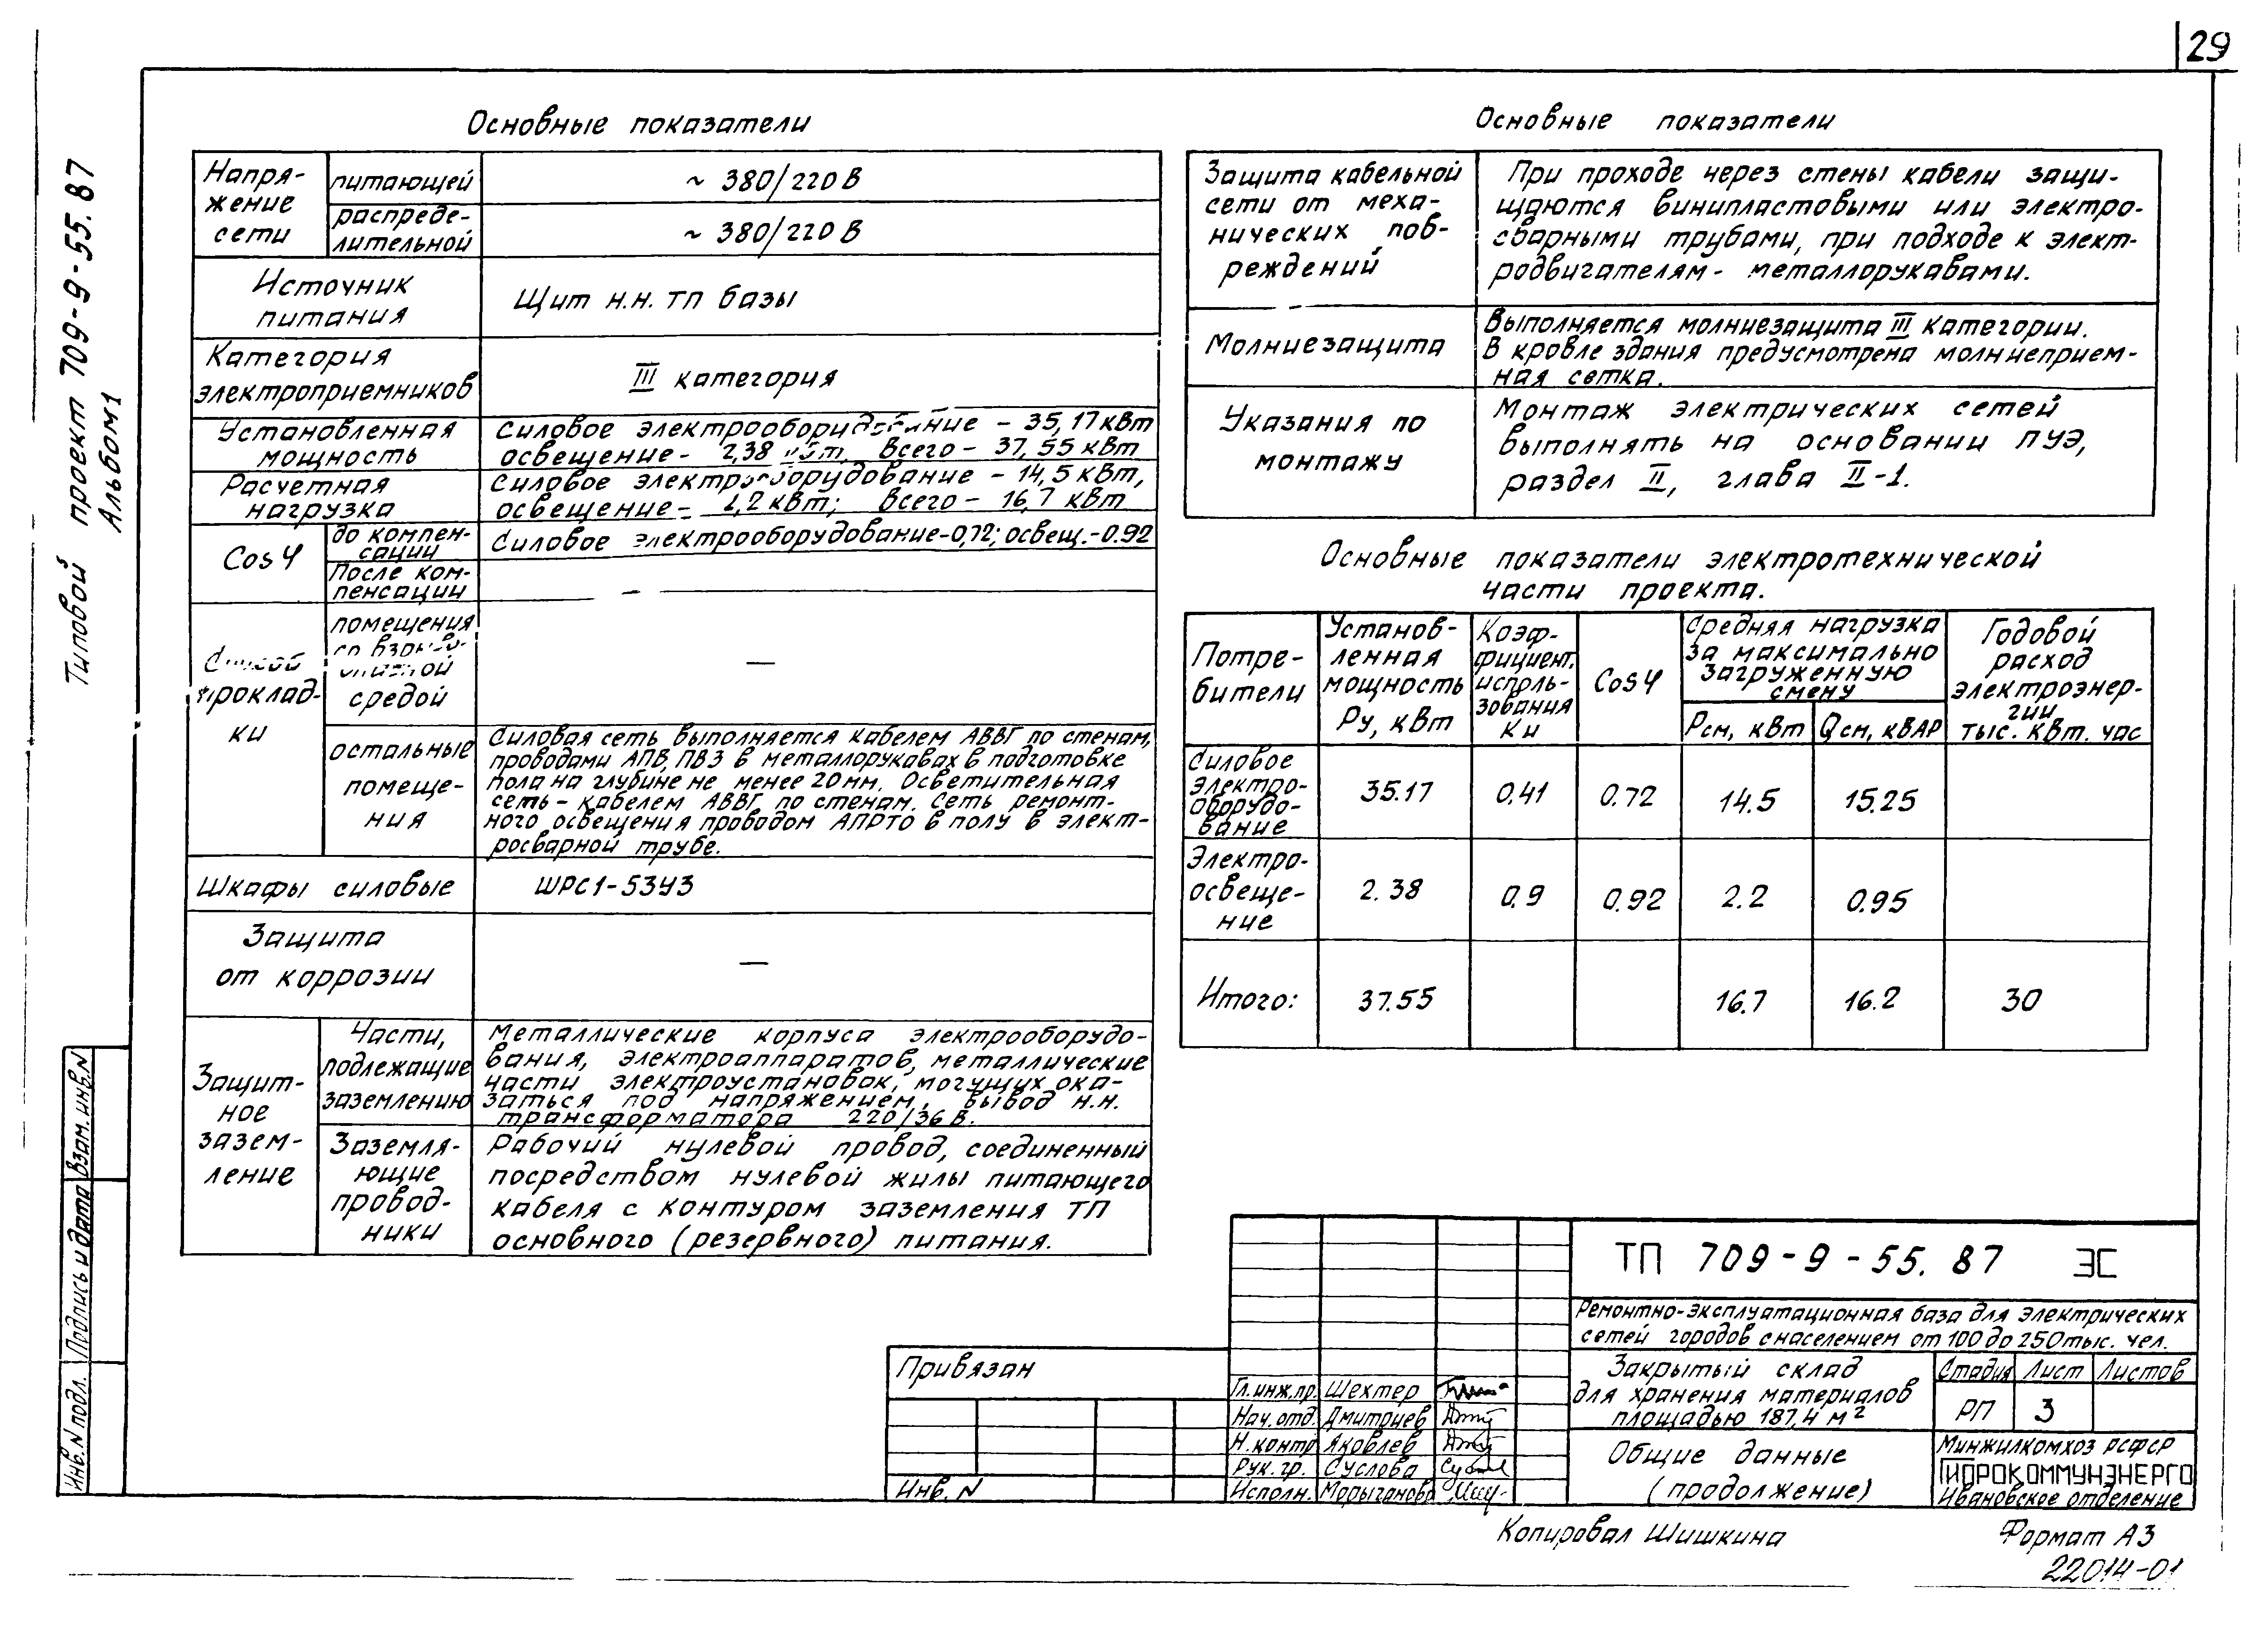 29
Типовой проект 709-9-55.87
Альбом 1
Основные показатели
Напря-
жение
сети
питающей
~ 380/220 В
распреде-
лительной
~ 380/220 В
Источник
питания
Щит н.н. ТП базы
Категория
электроприемников
III категория
Установленная
мощность
Силовое электрооборудование - 35,17 кВт
освещение - 2,38 кВт, всего - 37,55 кВт
Расчетная
нагрузка
Силовое электрооборудование - 14,5 кВт,
освещение - 2,2 кВт; всего - 16,7 кВт
Cos φ
до компен-
сации
Силовое электрооборудование-0,72; освещ.-0.92
После ком-
пенсации
—
Способ
проклад-
ки
помещения
со взрыво-
опасной
средой
—
остальные
помеще-
ния
Силовая сеть выполняется кабелем АВВГ по стенам,
проводами АПВ, ПВ3 в металлорукавах в подготовке
пола на глубине не менее 20мм. Осветительная
сеть - кабелем АВВГ по стенам. Сеть ремонт-
ного освещения проводом АПРТО в полу в элект-
росварной трубе.
Шкафы силовые
ШРС1-53У3
Защита
от коррозии
—
Защит-
ное
зазем-
ление
Части,
подлежащие
заземлению
Металлические корпуса электрооборудо-
вания, электроаппаратов, металлические
части электроустановок, могущих ока-
заться под напряжением, вывод н.н.
трансформатора 220/36 В.
Заземля-
ющие
провод-
ники
Рабочий нулевой провод, соединенный
посредством нулевой жилы питающего
кабеля с контуром заземления ТП
основного (резервного) питания.
Основные показатели
Защита кабельной
сети от меха-
нических пов-
реждений
При проходе через стены кабели защи-
щаются винипластовыми или электро-
сварными трубами, при подходе к элект-
родвигателям - металлорукавами.
Молниезащита
Выполняется молниезащита III категории.
В кровле здания предусмотрена молниеприем-
ная сетка.
Указания по
монтажу
Монтаж электрических сетей
выполнять на основании ПУЭ,
раздел II, глава II-1.
Основные показатели электротехнической
части проекта.
Потре-
бители
Установ-
ленная
мощность
Ру, кВт
Коэф-
фициент.
исполь-
зования
Ки
Cos φ
Средняя нагрузка
за максимально
загруженную
смену
Рсм, кВт
Qсм, кВАР
Годовой
расход
электроэнер-
гии
тыс. кВт. час
Силовое
электро-
оборудо-
вание
35.17
0.41
0.72
14.5
15.25
Электро-
освеще-
ние
2.38
0.9
0.92
2.2
0.95
Итого:
37.55
16.7
16.2
30
ТП 709-9-55.87 ЭС
Ремонтно-эксплуатационная база для электрических
сетей городов с населением от 100 до 250 тыс. чел.
Закрытый склад
для хранения материалов
площадью 187,4 м²
Стадия Лист Листов
РП 3
Общие данные
(продолжение)
Минжилкомхоз РСФСР
ГИПРОКОММУНЭНЕРГО
Ивановское отделение
Гл. инж. пр. Шехтер
Нач. отд. Дмитриев
Н. контр Яковлев
Рук. гр. Суслова
Исполн. Морыганова
Привязан
Инв. N
Взам. инв. N
Подпись и дата
Инв. N подл.
Копировал Шишкина
Формат А3
22014-01